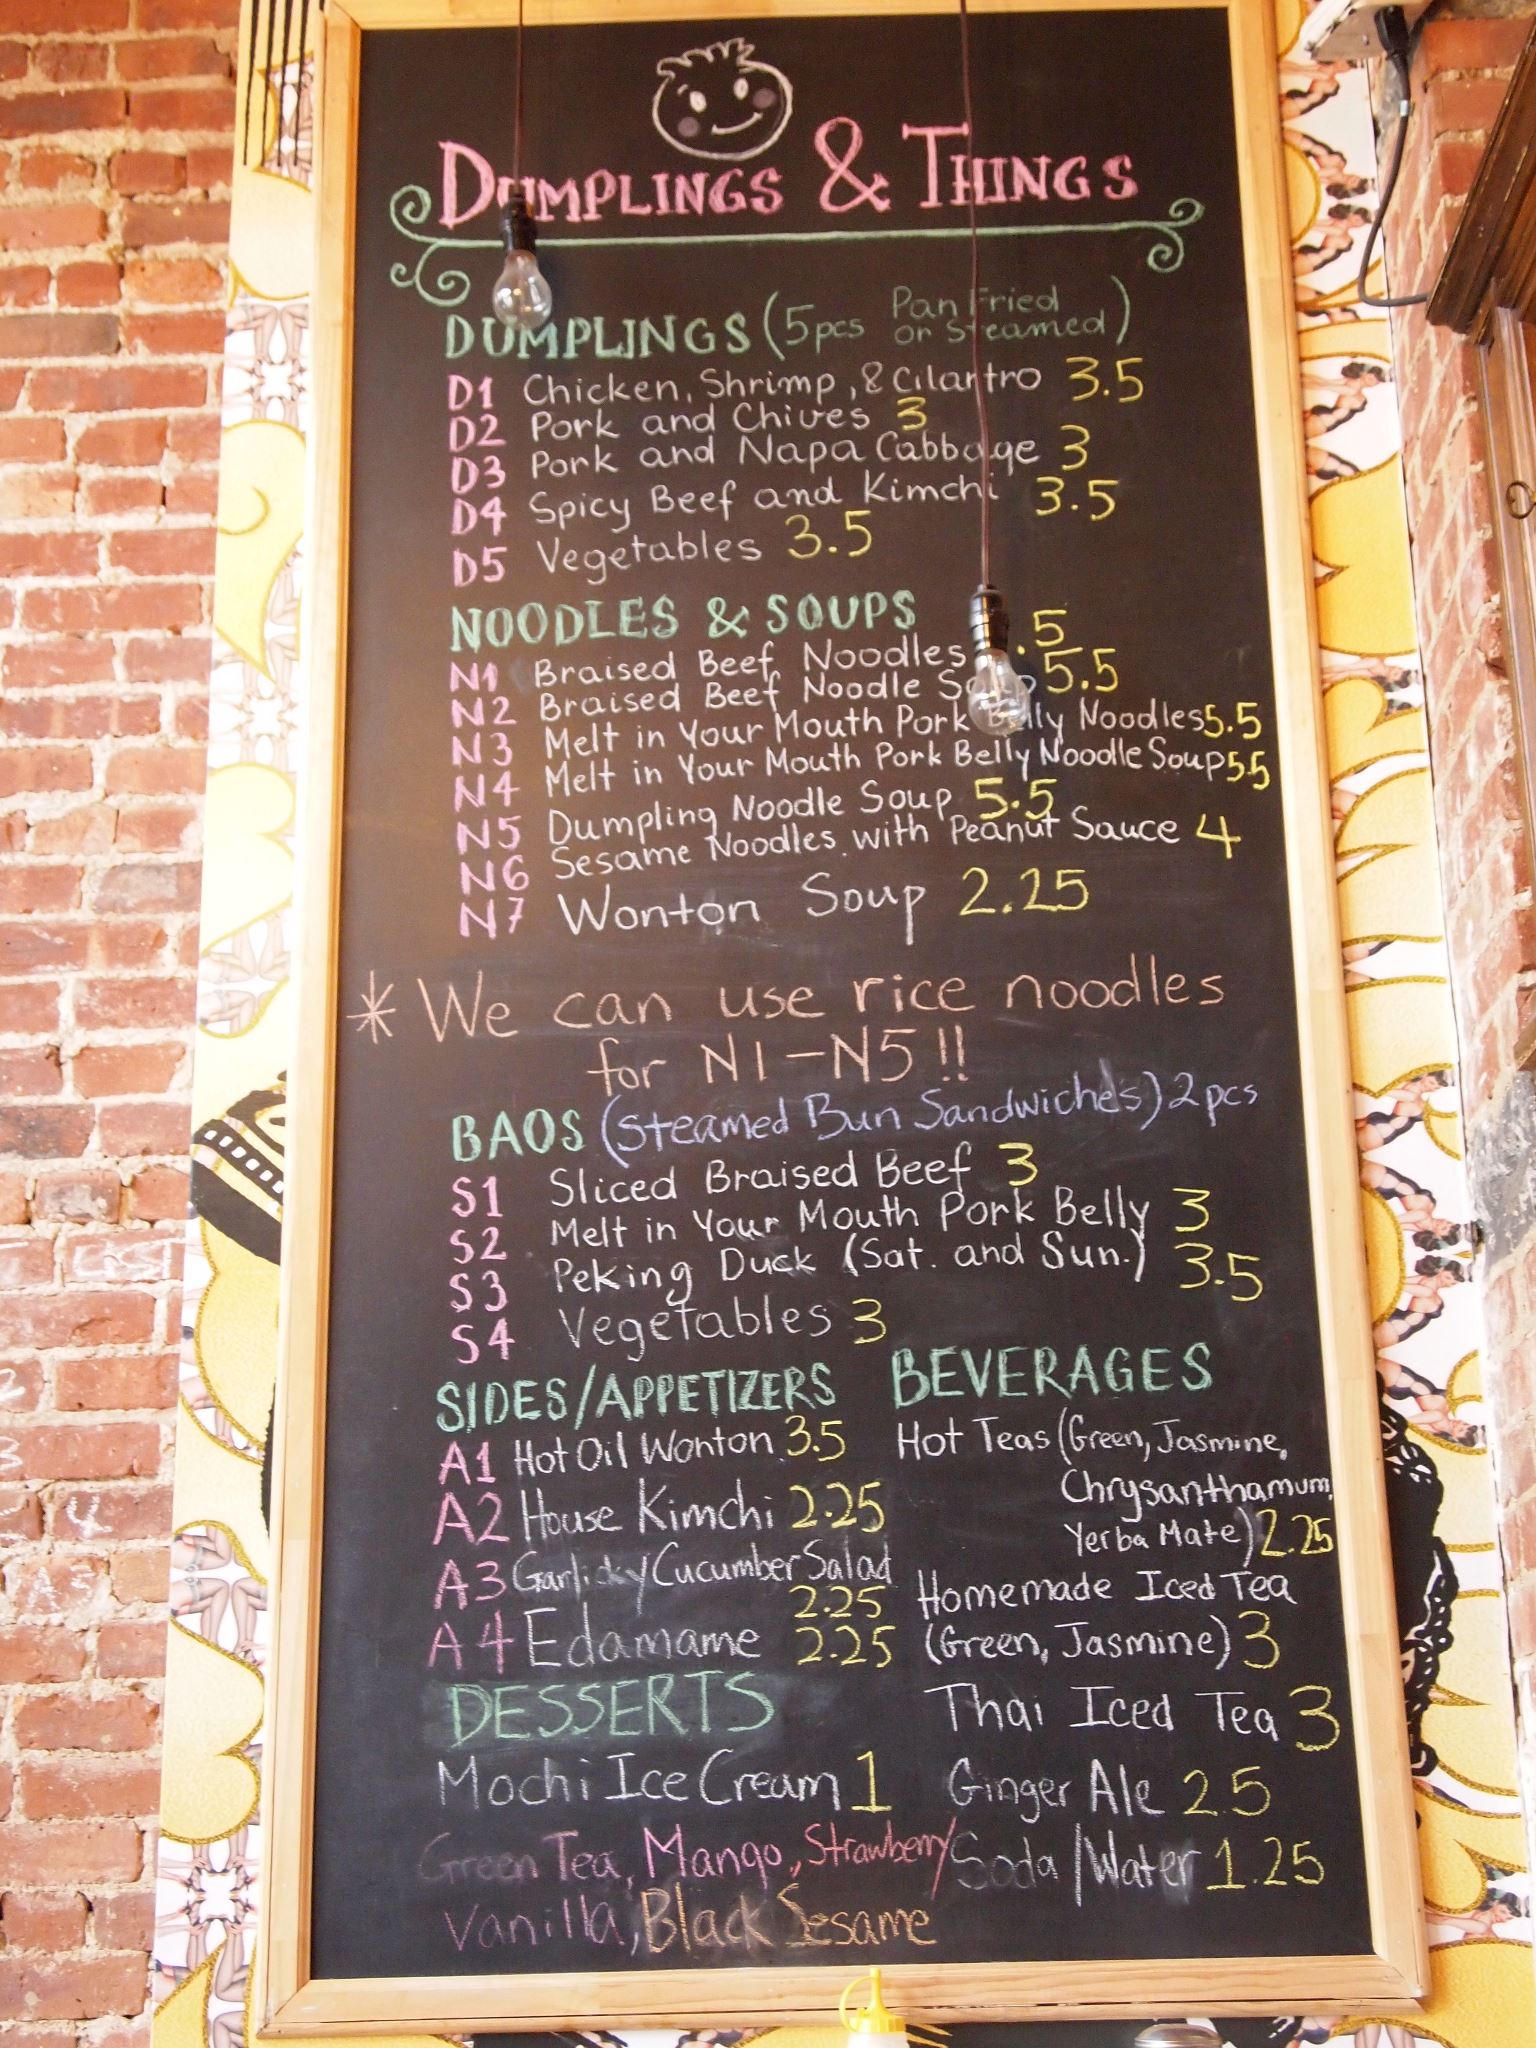 DUMPLINGS & THINGS
DUMPLINGS (5pcs Pan Fried or Steamed)
D1 Chicken, Shrimp, & Cilantro 3.5
D2 Pork and Chives 3
D3 Pork and Napa Cabbage 3
D4 Spicy Beef and Kimchi 3.5
D5 Vegetables 3.5
NOODLES & SOUPS
N1 Braised Beef Noodles .5
N2 Braised Beef Noodle Soup 5.5
N3 Melt in Your Mouth Pork Belly Noodles 5.5
N4 Melt in Your Mouth Pork Belly Noodle Soup 5.5
N5 Dumpling Noodle Soup 5.5
N6 Sesame Noodles with Peanut Sauce 4
N7 Wonton Soup 2.25
* We can use rice noodles
for N1-N5!!
BAOS (Steamed Bun Sandwiches) 2pcs
S1 Sliced Braised Beef 3
S2 Melt in Your Mouth Pork Belly 3
S3 Peking Duck (Sat. and Sun.) 3.5
S4 Vegetables 3
SIDES/APPETIZERS
A1 Hot Oil Wonton 3.5
A2 House Kimchi 2.25
A3 Garlicky Cucumber Salad
2.25
A4 Edamame 2.25
DESSERTS
Mochi Ice Cream 1
Green Tea, Mango, Strawberry
Vanilla, Black Sesame
BEVERAGES
Hot Teas (Green, Jasmine,
Chrysanthamum,
Yerba Mate) 2.25
Homemade Iced Tea
(Green, Jasmine) 3
Thai Iced Tea 3
Ginger Ale 2.5
Soda/Water 1.25